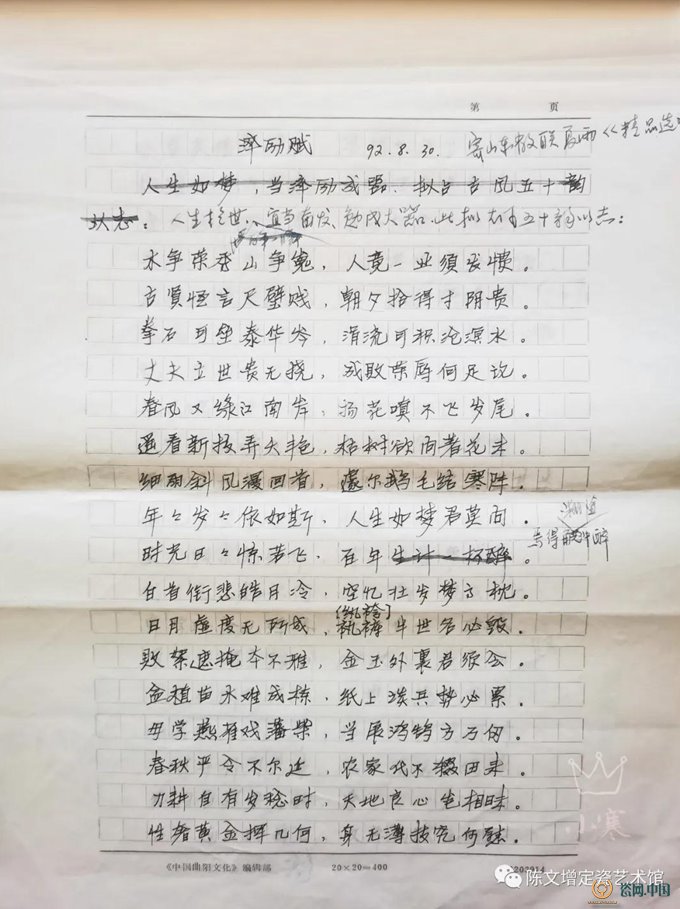 第 页
淬励赋 92.8.30. 寄山东楹联夏雨《精品选》
人生如梦，当淬励成器．拟古古风五十韵
以志： 人生於世，宜当奋发、勉成大器．此拟古风五十韵以志：
木争荣秀山争巍，人竟一业须发愤。
古贤恒言尺璧贱，朝夕拾得寸阴贵。
拳石可垒泰华岑，涓流可积沧溟水。
丈夫立世贵无挠，成败荣辱何足讥。
春风又绿江南岸，汤花嗅不飞岁尾。
遥看新枝弄大艳，梧树欲问着花未。
细雨斜风漫回首，遽尔鹅毛结寒阵。
年々岁々依如斯，人生如梦君莫问。
时光日々惊若飞，百年生计一杯醉。
焉得 醉
白首衔悲皓月冷，空忆壮岁梦高枕。
[纨袴]
日月虚度无所成，纨裤半世名必毁。
败絮遮掩本不雅，金玉外裹君须会。
盆植苗木难成栋，纸上谈兵势必累。
毋学燕雀戏藩柴，当展鸿鹄方万仞。
春秋严令不尔迟，农家代不掇田耒。
力耕自有岁稔时，天地良心岂相昧。
性奢黄金挥几何，身无薄技究何慰。
《中国曲阳文化》编辑部 20×20=400
小寒
陈文增定瓷艺术馆
瓷网.中国